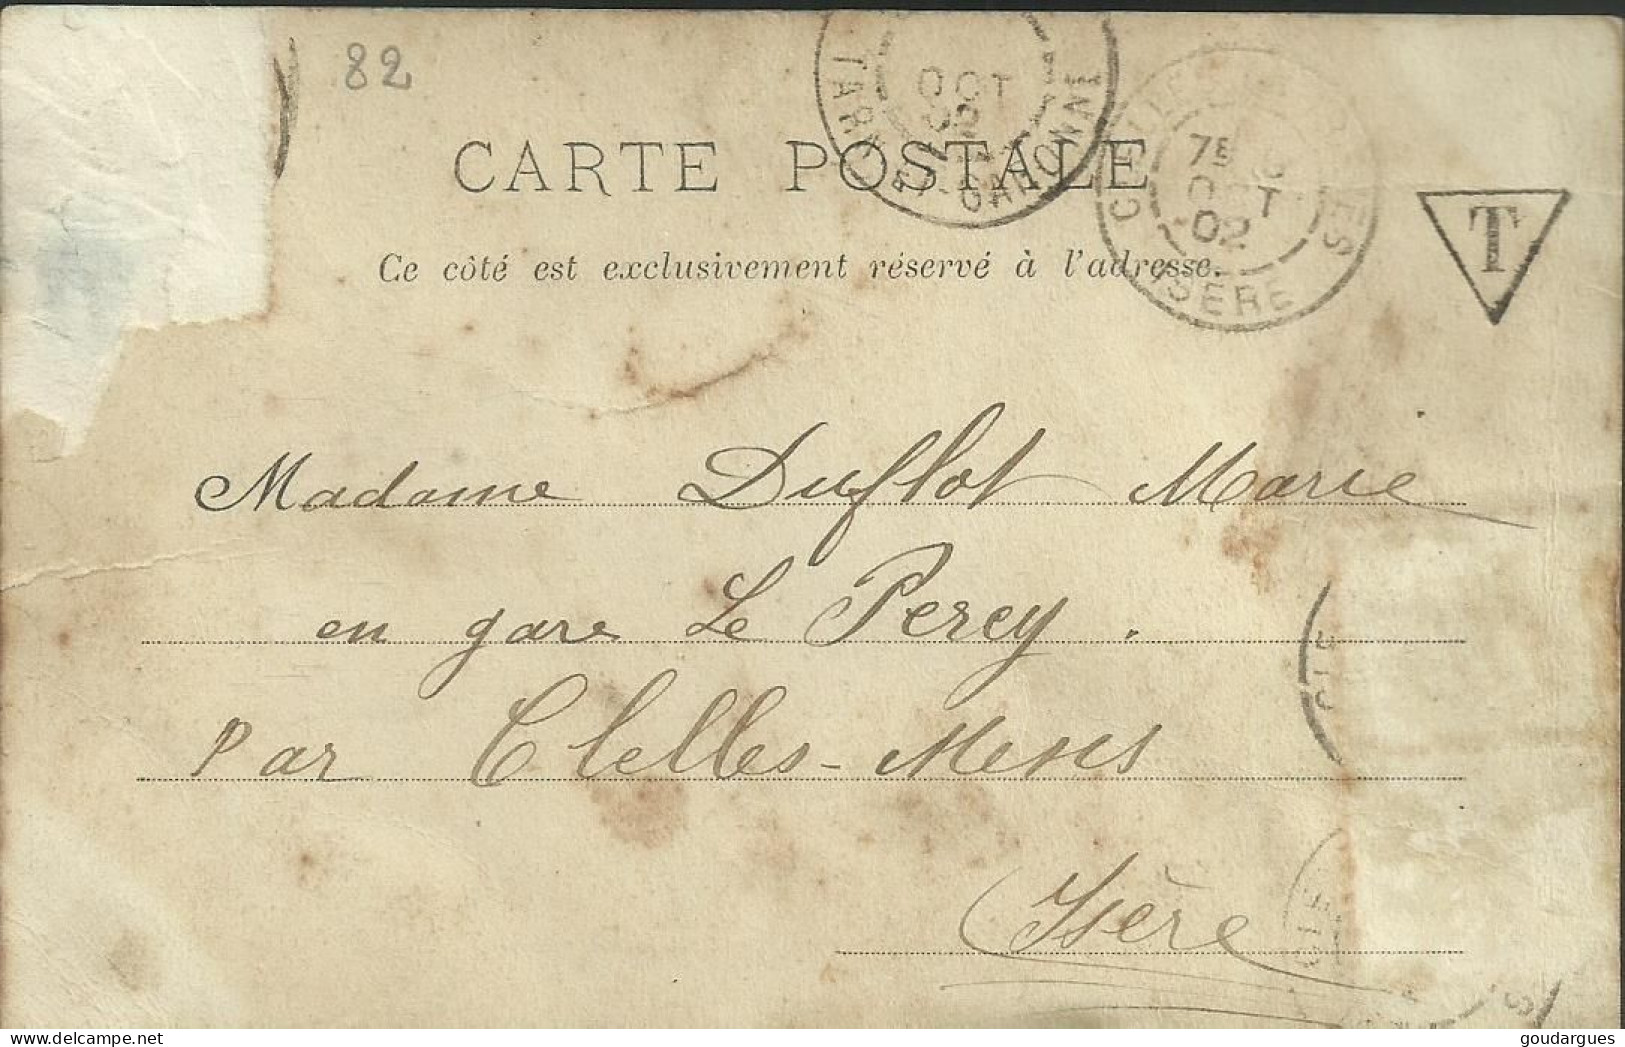 82
TARN-ET-GARONNE
OCT
02
7E
OCT
02
ISÈRE
CARTE POSTALE
T
Ce côté est exclusivement réservé à l'adresse.
Madame Duflot Marie
en gare Le Percy.
Par Clelles-Mens
Isère
goudargues